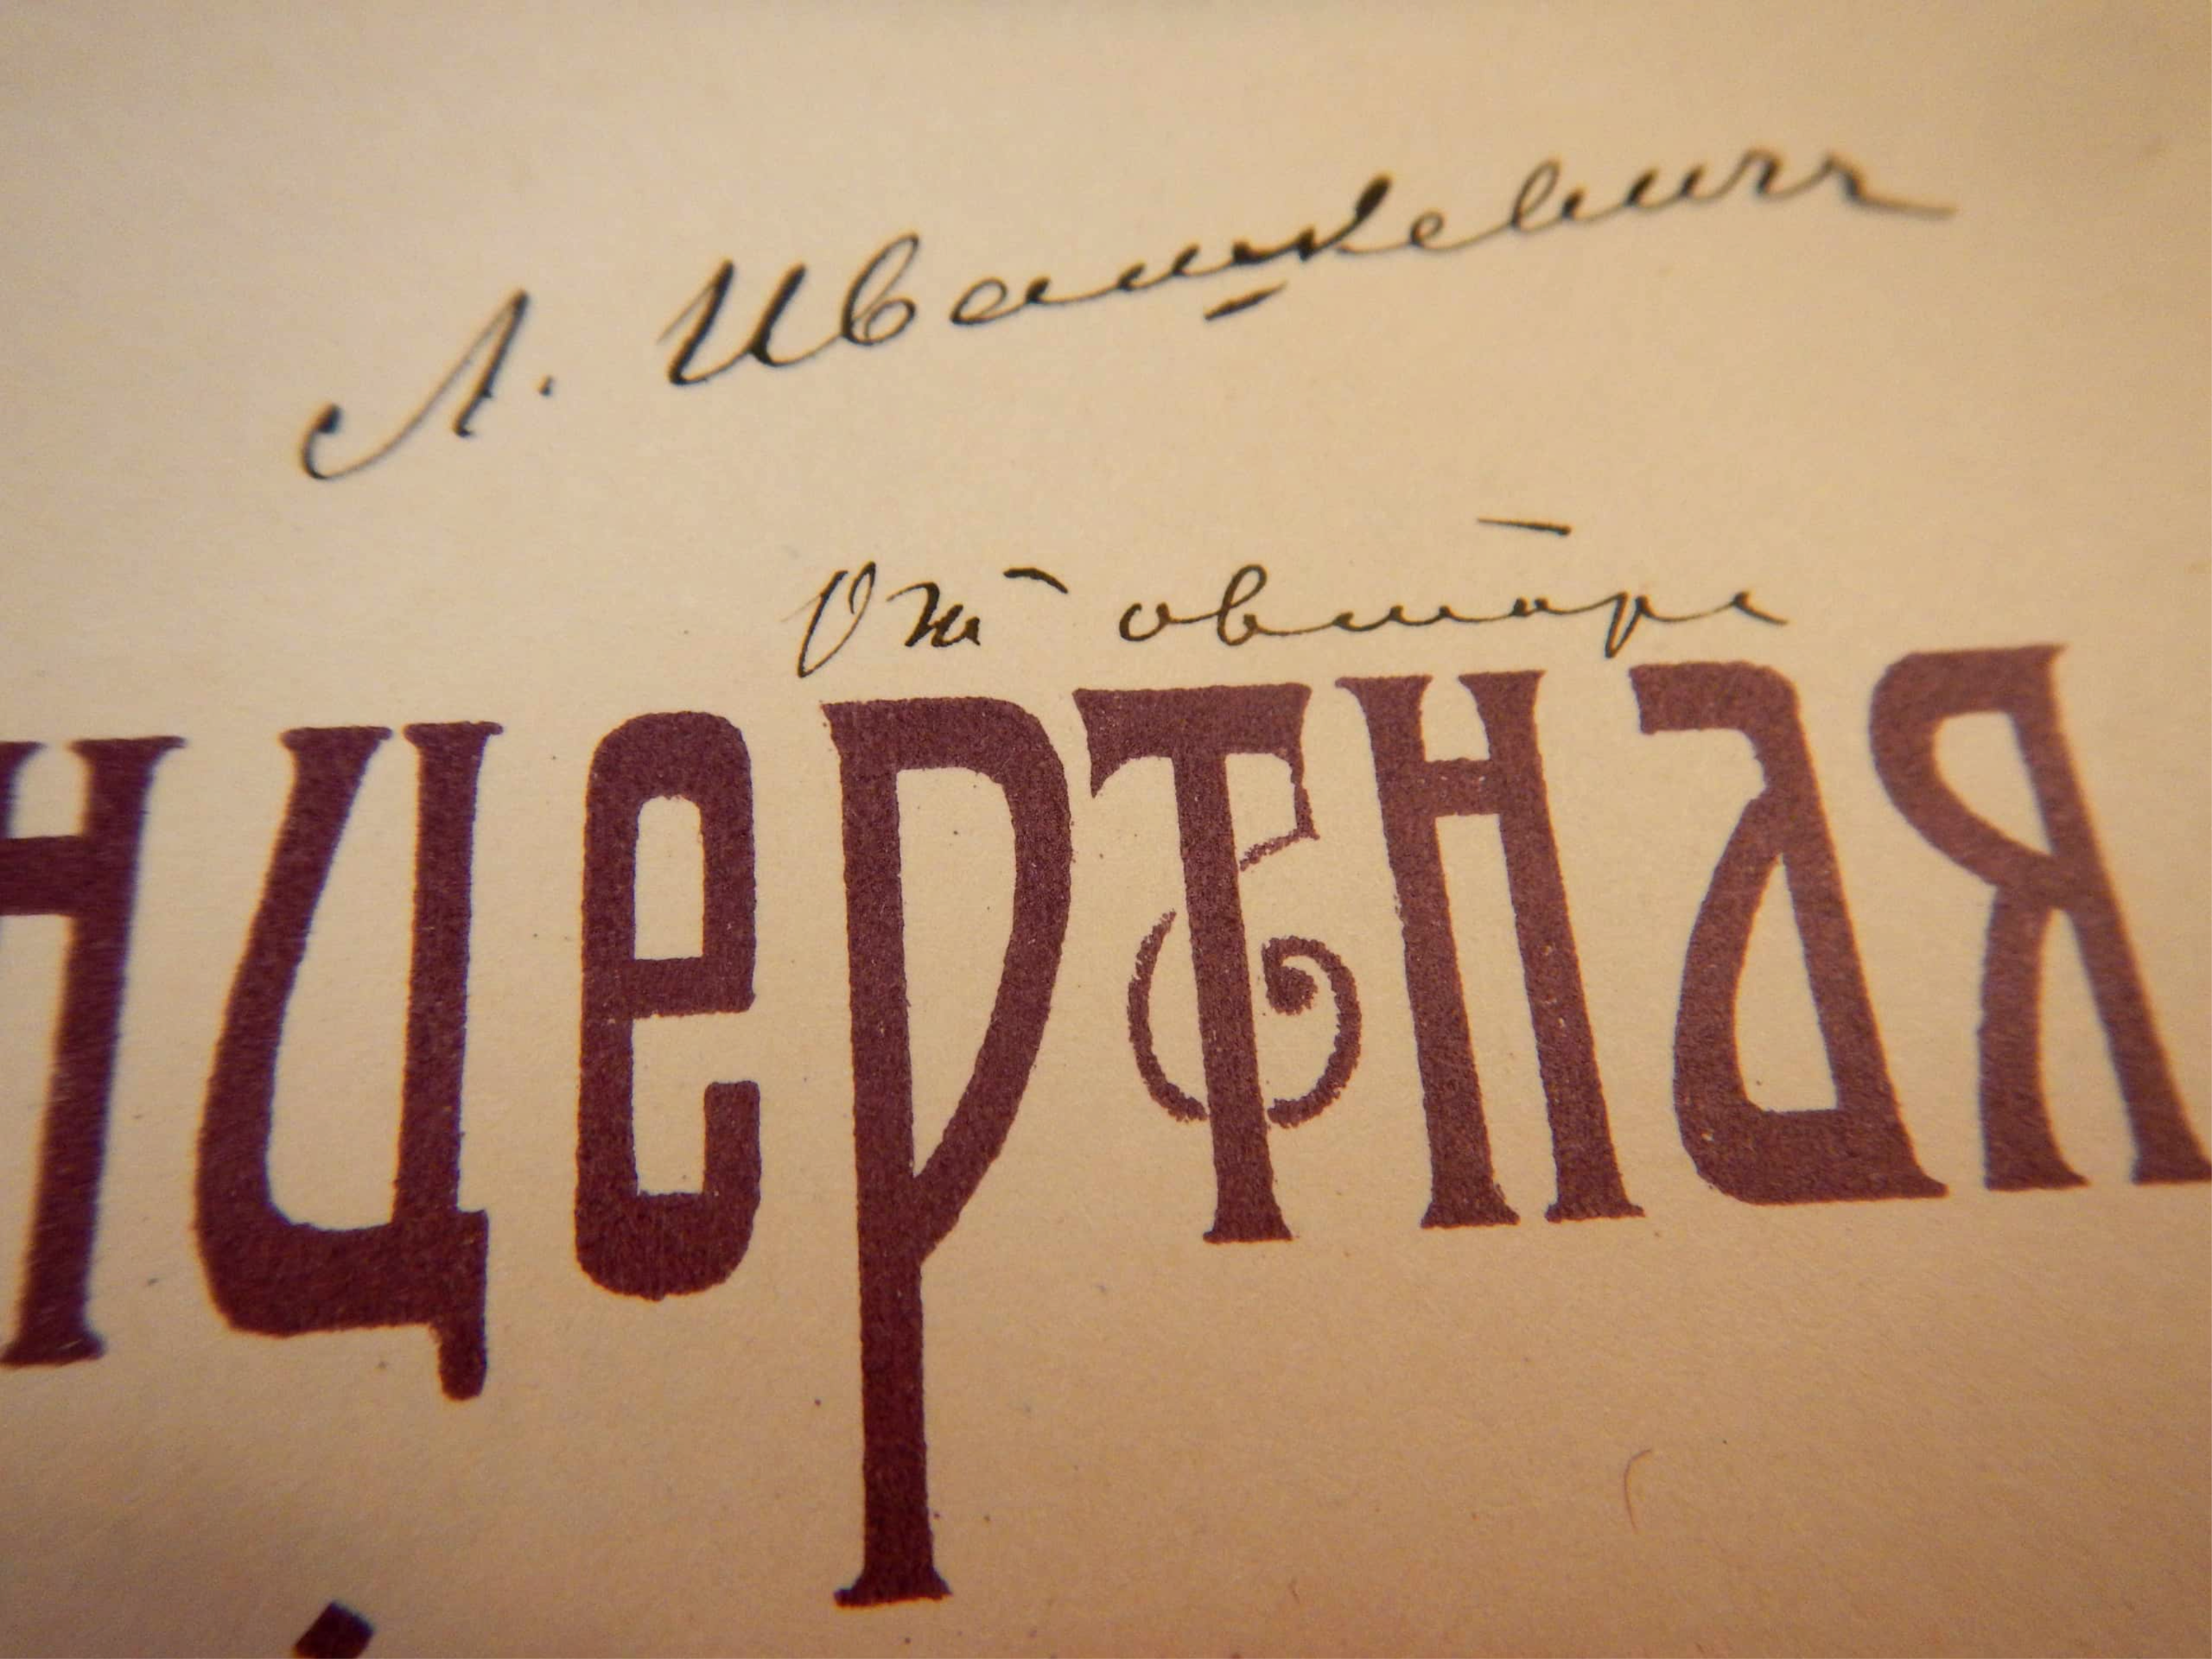 Л. Ивашкевичъ
От автора
нцертная